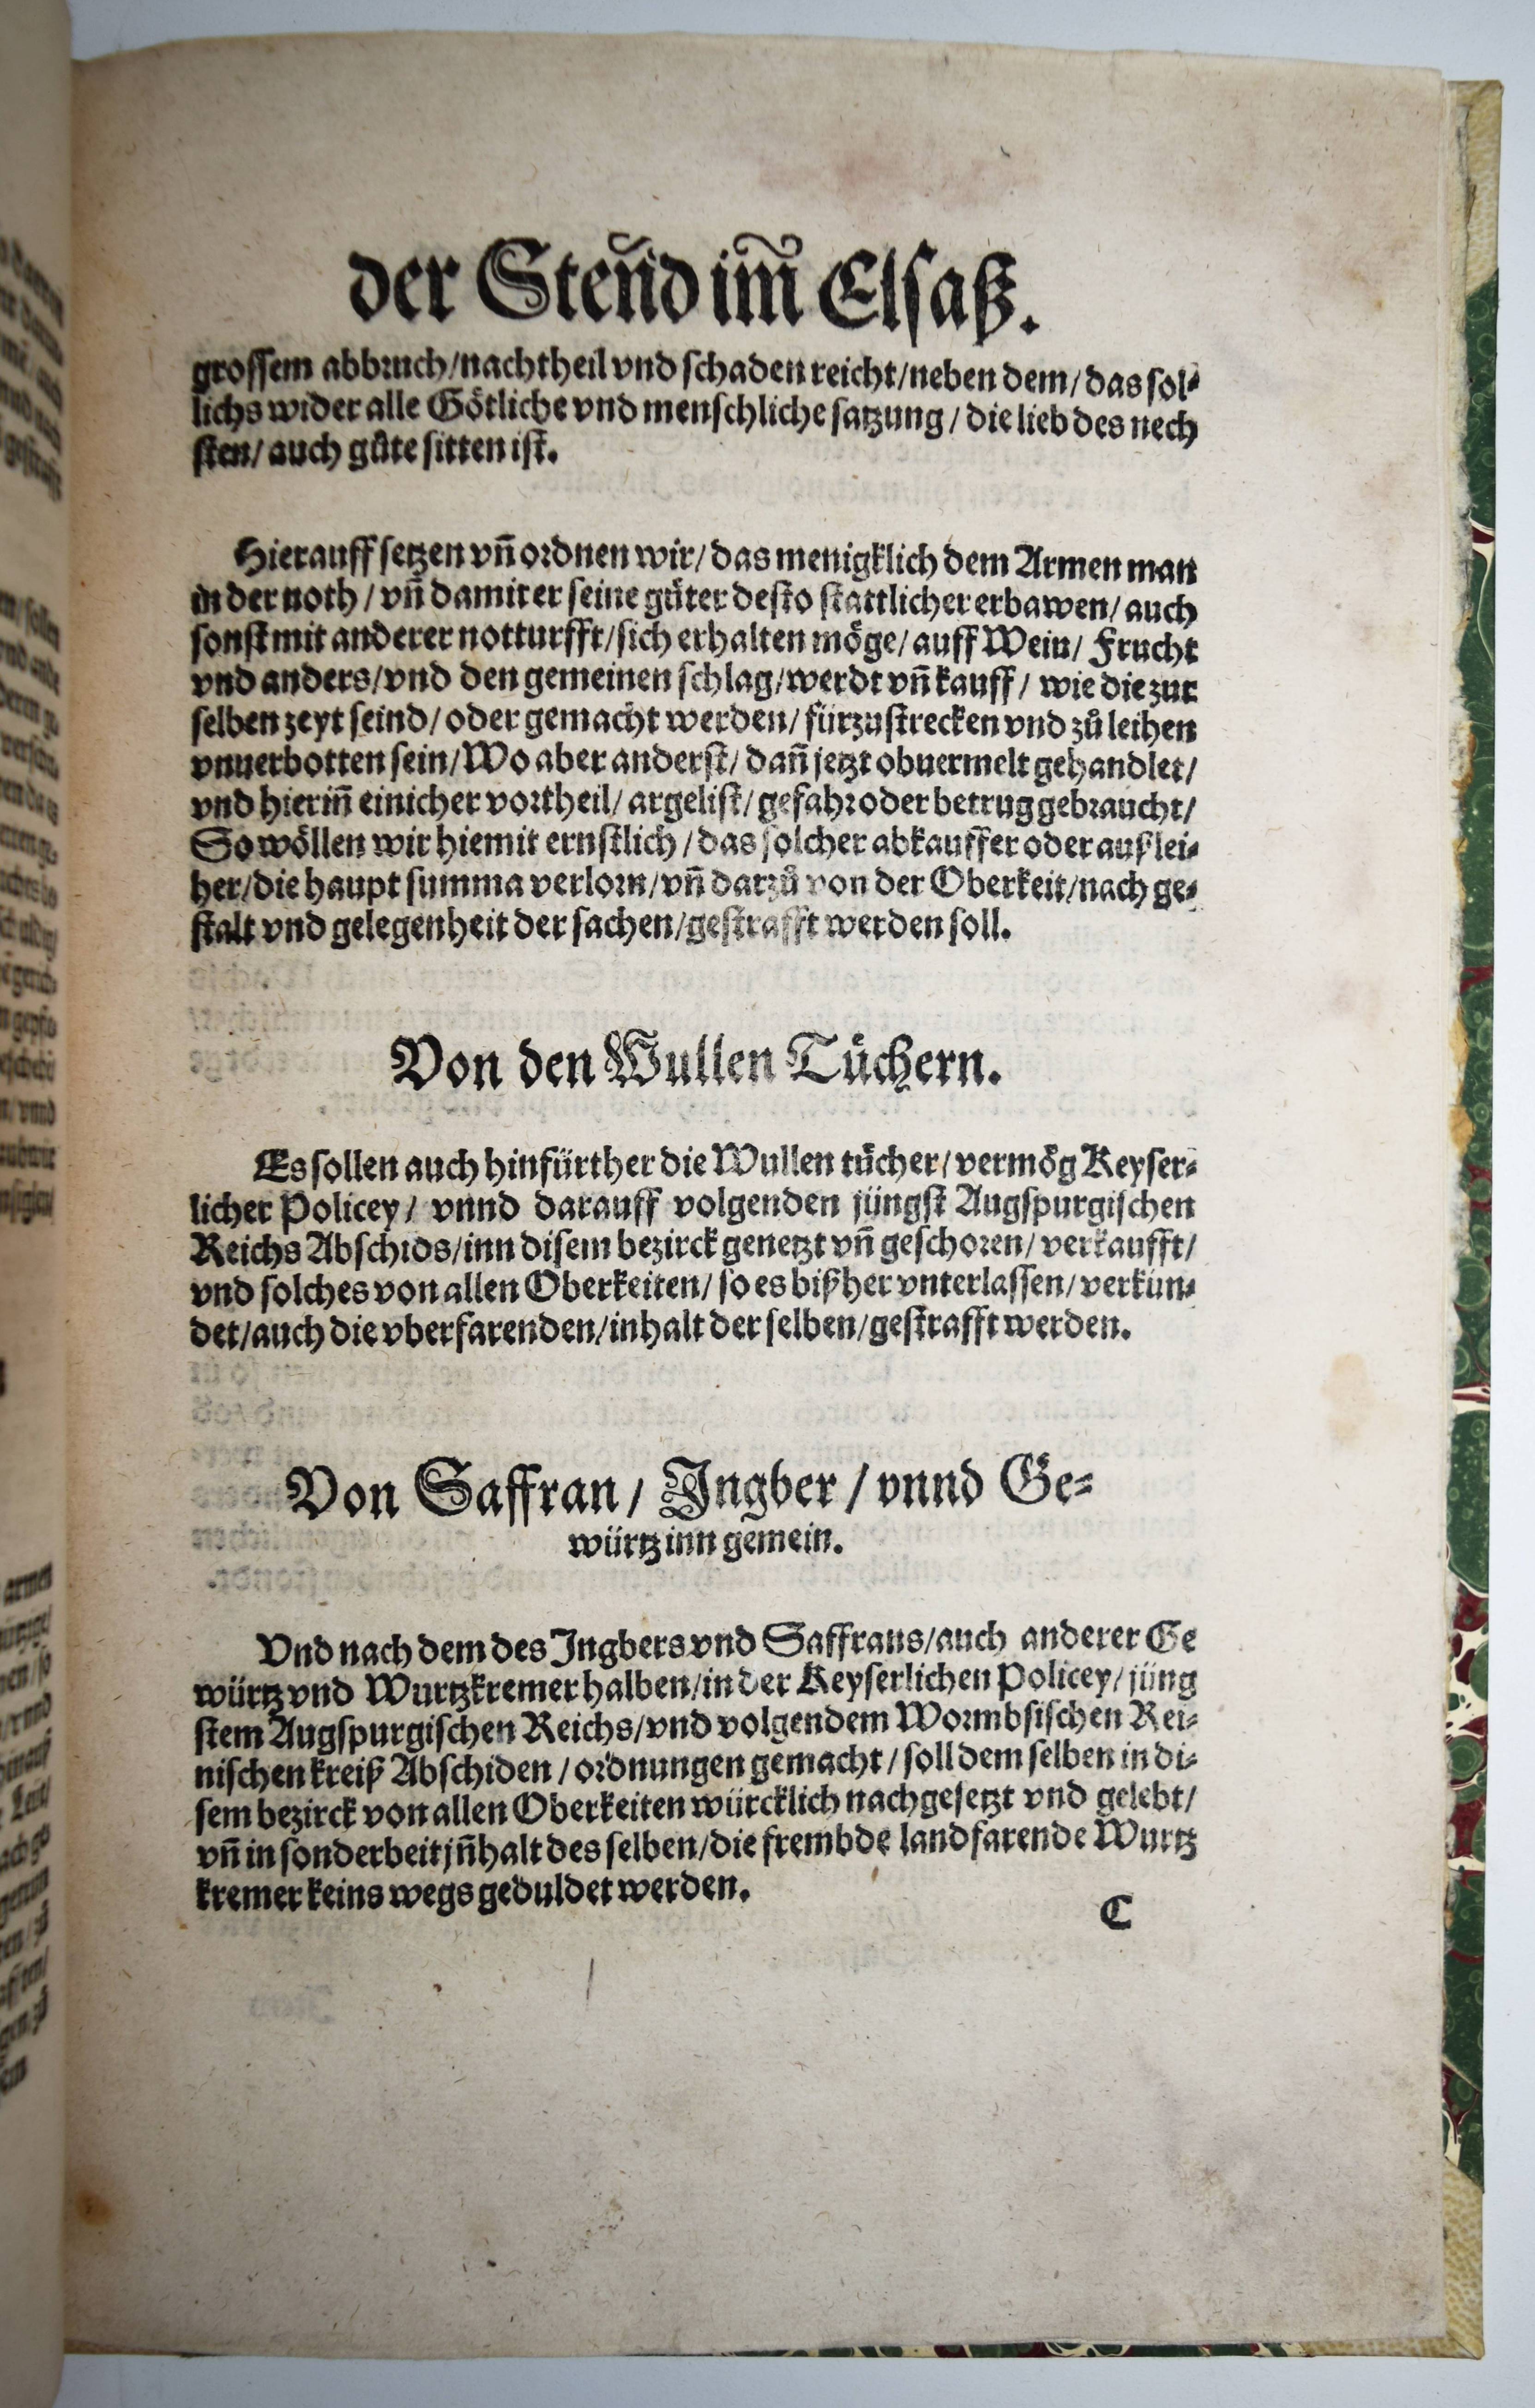 der Steñd im̃ Elsaß.
grossem abbruch/nachtheil vnd schaden reicht/neben dem/das sol⸗
lichs wider alle Götliche vnd menschliche satzung/die lieb des nech
sten/auch gůte sitten ist.
Hierauff setzen vñ ordnen wir/das menigklich dem Armen man
in der noth/vñ damit er seine gůter desto stattlicher erbawen/auch
sonst mit anderer notturfft/sich erhalten möge/auff Wein/Frucht
vnd anders/vnd den gemeinen schlag/werdt vñ kauff/wie die zur
selben zeyt seind/oder gemacht werden/fürzustrecken vnd zů leihen
vnuerbotten sein/Wo aber anderst/dañ jetzt obuermelt gehandlet/
vnd hieriñ einicher vortheil/argelist/gefahr oder betrug gebraucht/
So wöllen wir hiemit ernstlich/das solcher abkauffer oder außlei⸗
her/die haupt summa verlorn/vñ darzů von der Oberkeit/nach ge⸗
stalt vnd gelegenheit der sachen/gestrafft werden soll.
Von den Wullen Tüchern.
Es sollen auch hinfürther die Wullen tücher/vermög Keyser⸗
licher Policey/vnnd darauff volgenden jüngst Augspurgischen
Reichs Abschids/inn disem bezirck genetzt vñ geschoren/verkaufft/
vnd solches von allen Oberkeiten/so es bißher vnterlassen/verkün⸗
det/auch die vberfarenden/inhalt der selben/gestrafft werden.
Von Saffran/Ingber/vnnd Ge⸗
würtz inn gemein.
Vnd nach dem des Ingbers vnd Saffrans/auch anderer Ge
würtz vnd Wurtzkremer halben/in der Keyserlichen Policey/jüng
stem Augspurgischen Reichs/vnd volgendem Wormbsischen Rei⸗
nischen kreiß Abschiden/ordnungen gemacht/soll dem selben in di⸗
sem bezirck von allen Oberkeiten würcklich nachgesetzt vnd gelebt/
vñ in sonderheit jñhalt des selben/die frembde landfarende Wurtz
kremer keins wegs geduldet werden.
C